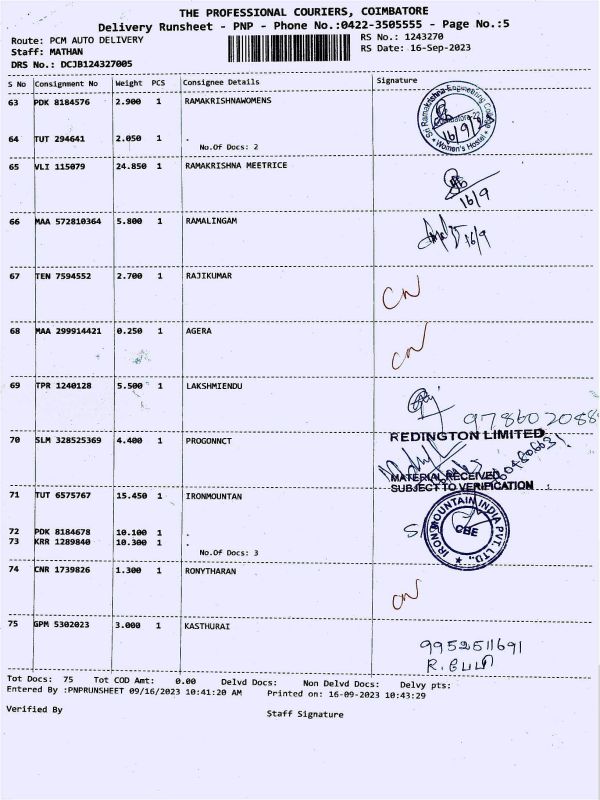 THE PROFESSIONAL COURIERS, COIMBATORE
Delivery Runsheet - PNP - Phone No.:0422-3505555 - Page No.:5
Route: PCM AUTO DELIVERY RS No.: 1243270
Staff: MATHAN RS Date: 16-Sep-2023
DRS No.: DCJB124327005
S No Consignment No Weight PCS Consignee Details Signature
63 PDK 8184576 2.900 1 RAMAKRISHNAWOMENS
Sri Ramakrishna Engineering College
Coimbatore-22
16/9/23
Women's Hostel
64 TUT 294641 2.050 1 .
No.Of Docs: 2
65 VLI 115079 24.850 1 RAMAKRISHNA MEETRICE
16/9
66 MAA 572810364 5.800 1 RAMALINGAM
16/9
67 TEN 7594552 2.700 1 RAJIKUMAR
CN
68 MAA 299914421 0.250 1 AGERA
CN
69 TPR 1240128 5.500 1 LAKSHMIENDU
9786020885
70 SLM 328525369 4.400 1 PROGONNCT
REDINGTON LIMITED
MATERIAL RECEIVED
SUBJECT TO VERIFICATION
71 TUT 6575767 15.450 1 IRONMOUNTAN
IRON MOUNTAIN INDIA PVT. LTD.
CBE
72 PDK 8184678 10.100 1 .
73 KRR 1289840 10.300 1 .
No.Of Docs: 3
74 CNR 1739826 1.300 1 RONYTHARAN
CN
75 GPM 5302023 3.000 1 KASTHURAI
9952511691
Tot Docs: 75 Tot COD Amt: 0.00 Delvd Docs: Non Delvd Docs: Delvy pts:
Entered By :PNPRUNSHEET 09/16/2023 10:41:20 AM Printed on: 16-09-2023 10:43:29
Verified By Staff Signature